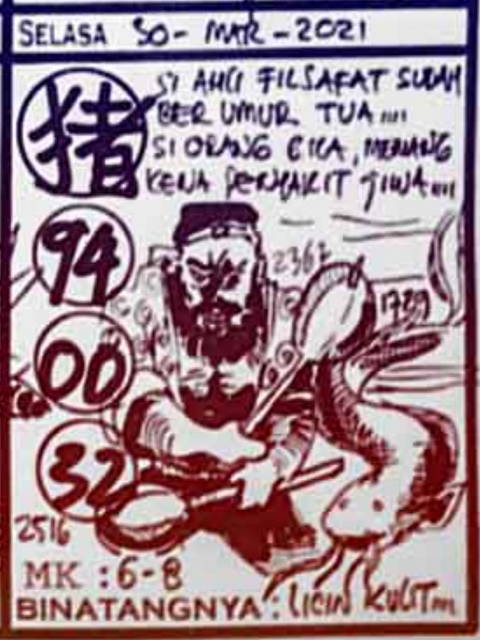 SELASA 30 - MAR - 2021
SI AHLI FILSAFAT SUDAH
猪
BER UMUR TUA....
SI ORANG GILA, MEMANG
KENA PENYAKIT JIWA....
94
2367
1729
00
32
2516
MK : 6-8
BINATANGNYA : LICIN KULIT....